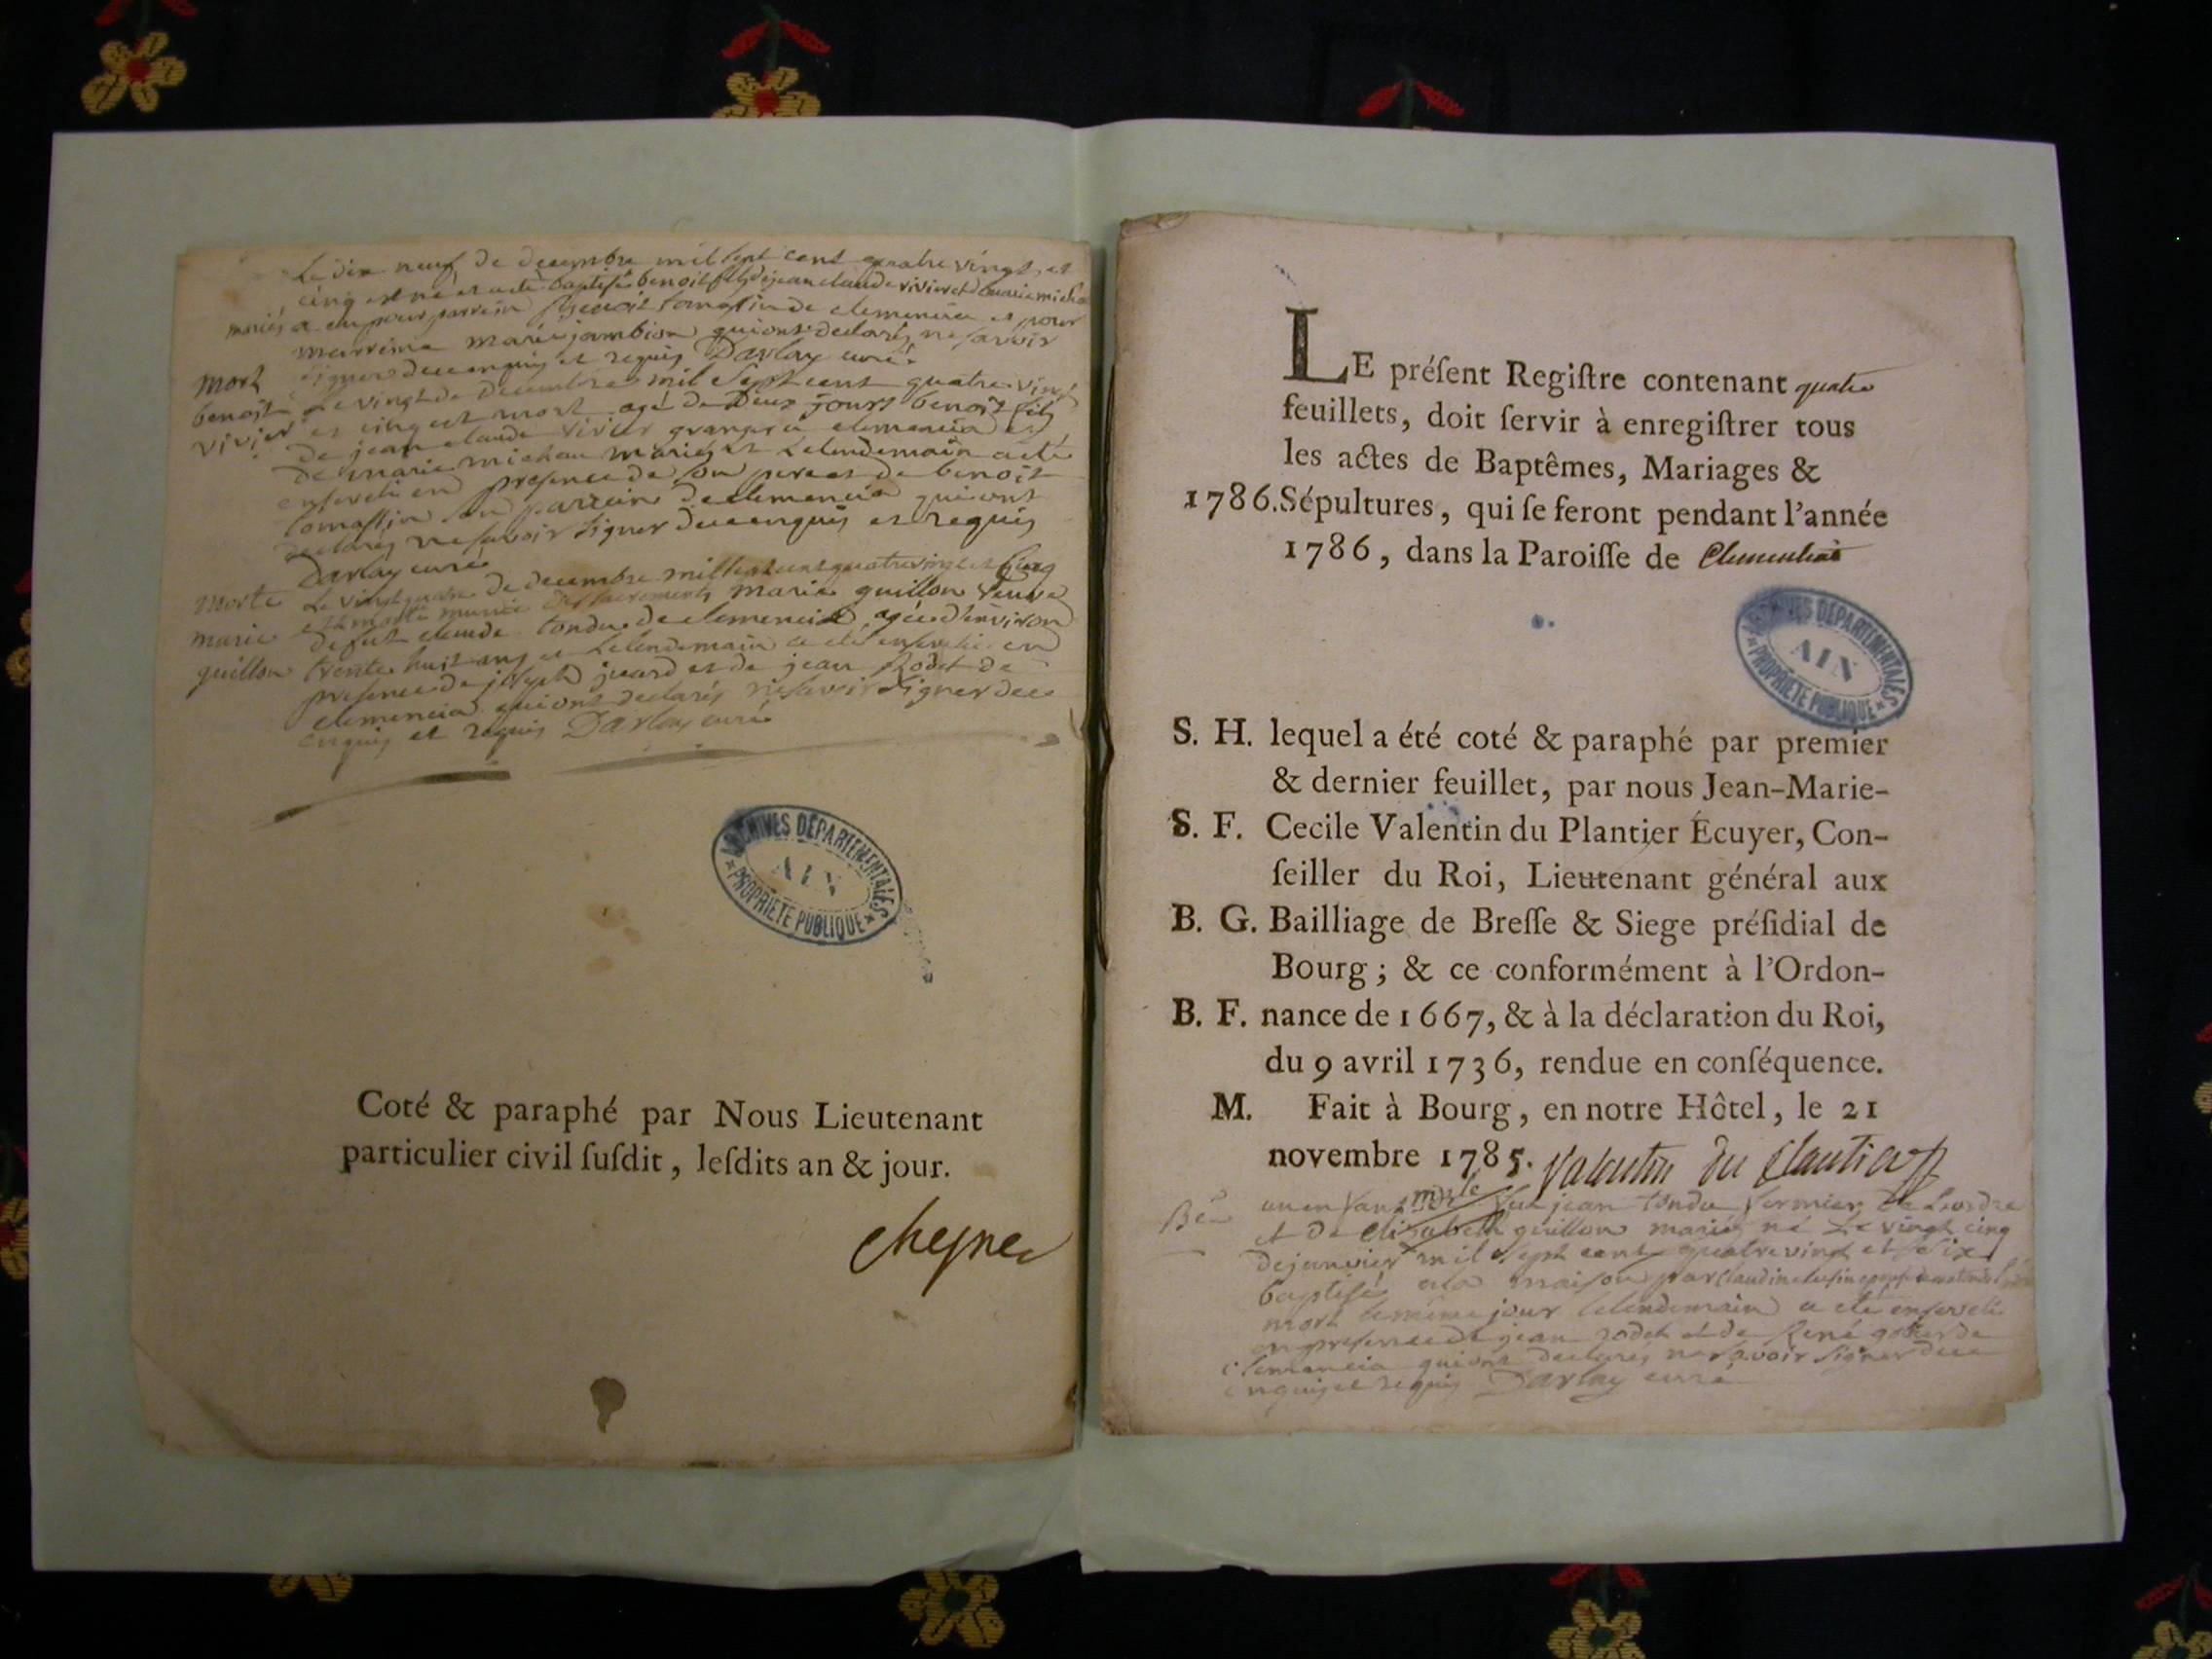 Le dix neuf de decembre mil sept cent quatre vingt et
cinq est né et a eté baptisé benoit fils de jean claude vivier et de marie michau
mariés a eu pour parrein benoit tomassin de clemencia et pour
marreine marie jambion qui ont declarés ne savoir
signer de ce enquis et requis Darlay curé
mort
benoit
vivier
Le vingt de Decembre mil sept cent quatre vingt
et cinq est mort agé de Deux jours benoit fils
de jean claude vivier granger a clemencia et
de marie michau mariés et le lendemain a eté
enseveli en presence de son pere et de benoit
tomassin son parrein de clemencia qui ont
declarés ne savoir signer de ce enquis et requis
Darlay curé
morte
marie
guillon
Le vingt quatre de decembre mil sept cent quatre vingt et cinq
est morte munie des sacrements marie guillon veuve
de fut claude tondu de clemencia agée d'environ
trente huit ans et le lendemain a eté enseveli en
presence de joseph juard et de jean Rodet de
clemencia qui ont declarés ne savoir signer de ce
enquis et requis Darlay curé
ARCHIVES DÉPARTEMENTALES
AIN
PROPRIÉTÉ PUBLIQUE
Coté & paraphé par Nous Lieutenant
particulier civil ſuſdit, leſdits an & jour.
LE préſent Regiſtre contenant quatre
feuillets, doit ſervir à enregiſtrer tous
les actes de Baptêmes, Mariages &
1786. Sépultures, qui ſe feront pendant l'année
1786, dans la Paroiſſe de Clementiat
ARCHIVES DÉPARTEMENTALES
AIN
PROPRIÉTÉ PUBLIQUE
S. H. lequel a été coté & paraphé par premier
& dernier feuillet, par nous Jean-Marie-
S. F. Cecile Valentin du Plantier Écuyer, Con-
ſeiller du Roi, Lieutenant général aux
B. G. Bailliage de Breſſe & Siege préſidial de
Bourg ; & ce conformément à l'Ordon-
B. F. nance de 1667, & à la déclaration du Roi,
du 9 avril 1736, rendue en conſéquence.
M. Fait à Bourg, en notre Hôtel, le 21
novembre 1785. Valentin du Plantier
un enfant jean tondu fermier
et de elisabeth guillon mariés né Le vingt cinq
de janvier mil sept cent quatre vingt et six
baptisé a la maison par claudine
mort le même jour le lendemain a eté enseveli
en presence de jean rodet et de René de
clemencia qui ont declarés ne savoir signer de ce
enquis et requis Darlay curé